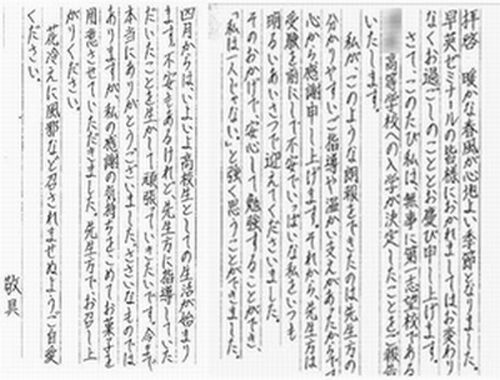 拝啓　暖かな春風が心地よい季節となりました。
早英ゼミナールの皆様におかれましてはお変わり
なくお過ごしのこととお慶び申し上げます。
さて、このたび私は、無事に第一志望校である
高等学校への入学が決定したことをご報告
いたします。
私が、このような朗報をできたのは先生方の
分かりやすいご指導や温かい支えがあったからです。
心から感謝申し上げます。それから、先生方は
受験を前にして不安でいっぱいな私をいつも
明るいあいさつで迎えてくださいました。
そのおかげで、安心して勉強することができ、
「私は一人じゃない。」と強く思うことができました。
四月からは、いよいよ高校生としての生活が始まり
ます。不安もあるけれど先生方に指導していた
だいたことを生かして頑張っていきたいです。今まで
本当にありがとうございました。ささいなものでは
ありますが、私の感謝の気持ちをこめてお菓子を
用意させていただきました。先生方でお召し上
がりください。
花冷えに風邪など召されませぬようご自愛
ください。
敬具